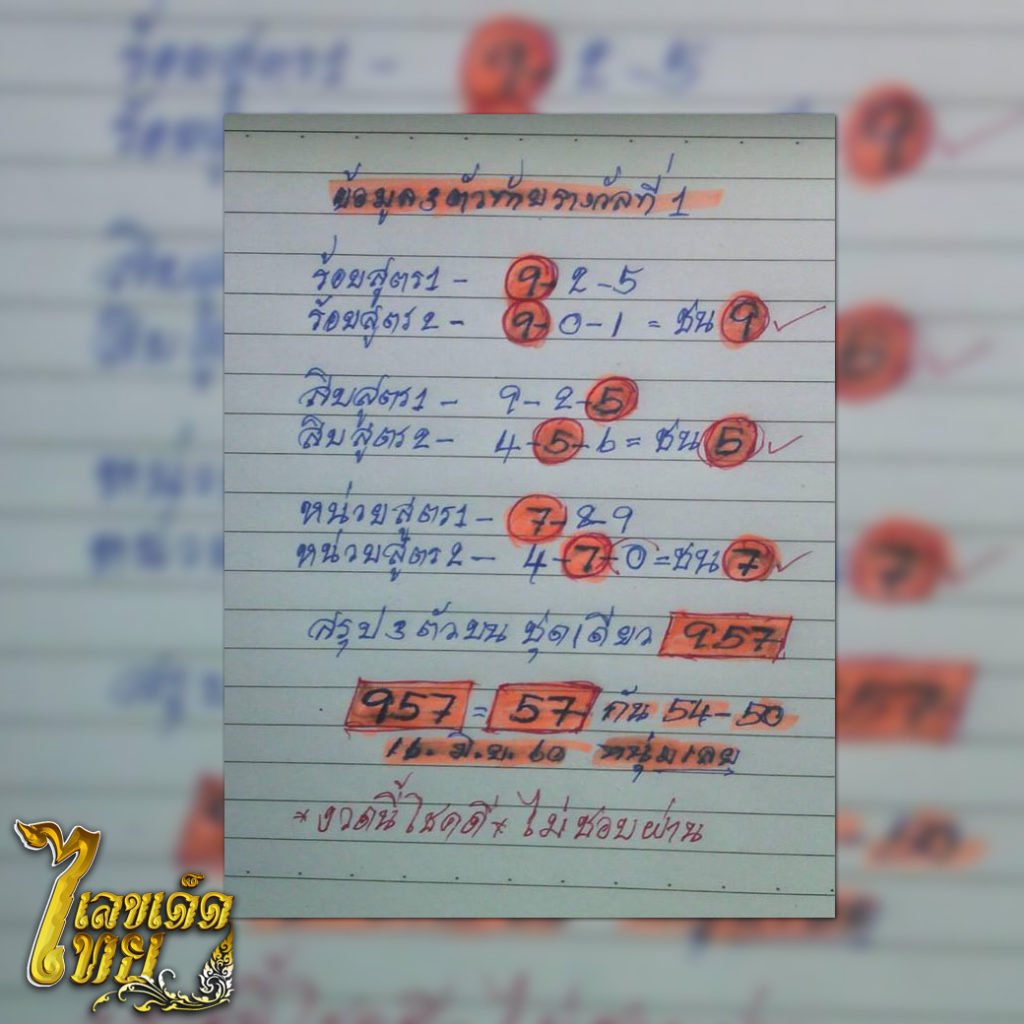 ข้อมูล 3 ตัวท้ายรางวัลที่ 1
ร้อยสูตร1 - 9-2-5
ร้อยสูตร 2 - 9-0-1 = ชน 9
สิบสูตร1 - 9-2-5
สิบสูตร 2 - 4-5-6 = ชน 5
หน่วยสูตร1 - 7-8-9
หน่วยสูตร 2 - 4-7-0 = ชน 7
สรุป 3 ตัวบน ชุดเดียว 957
957 = 57 กัน 54-50
16. มิ.ย. 60 หนุ่มเลย
*งวดนี้โชคดี* ไม่ชอบผ่าน
เลขเด็ด
ไทย